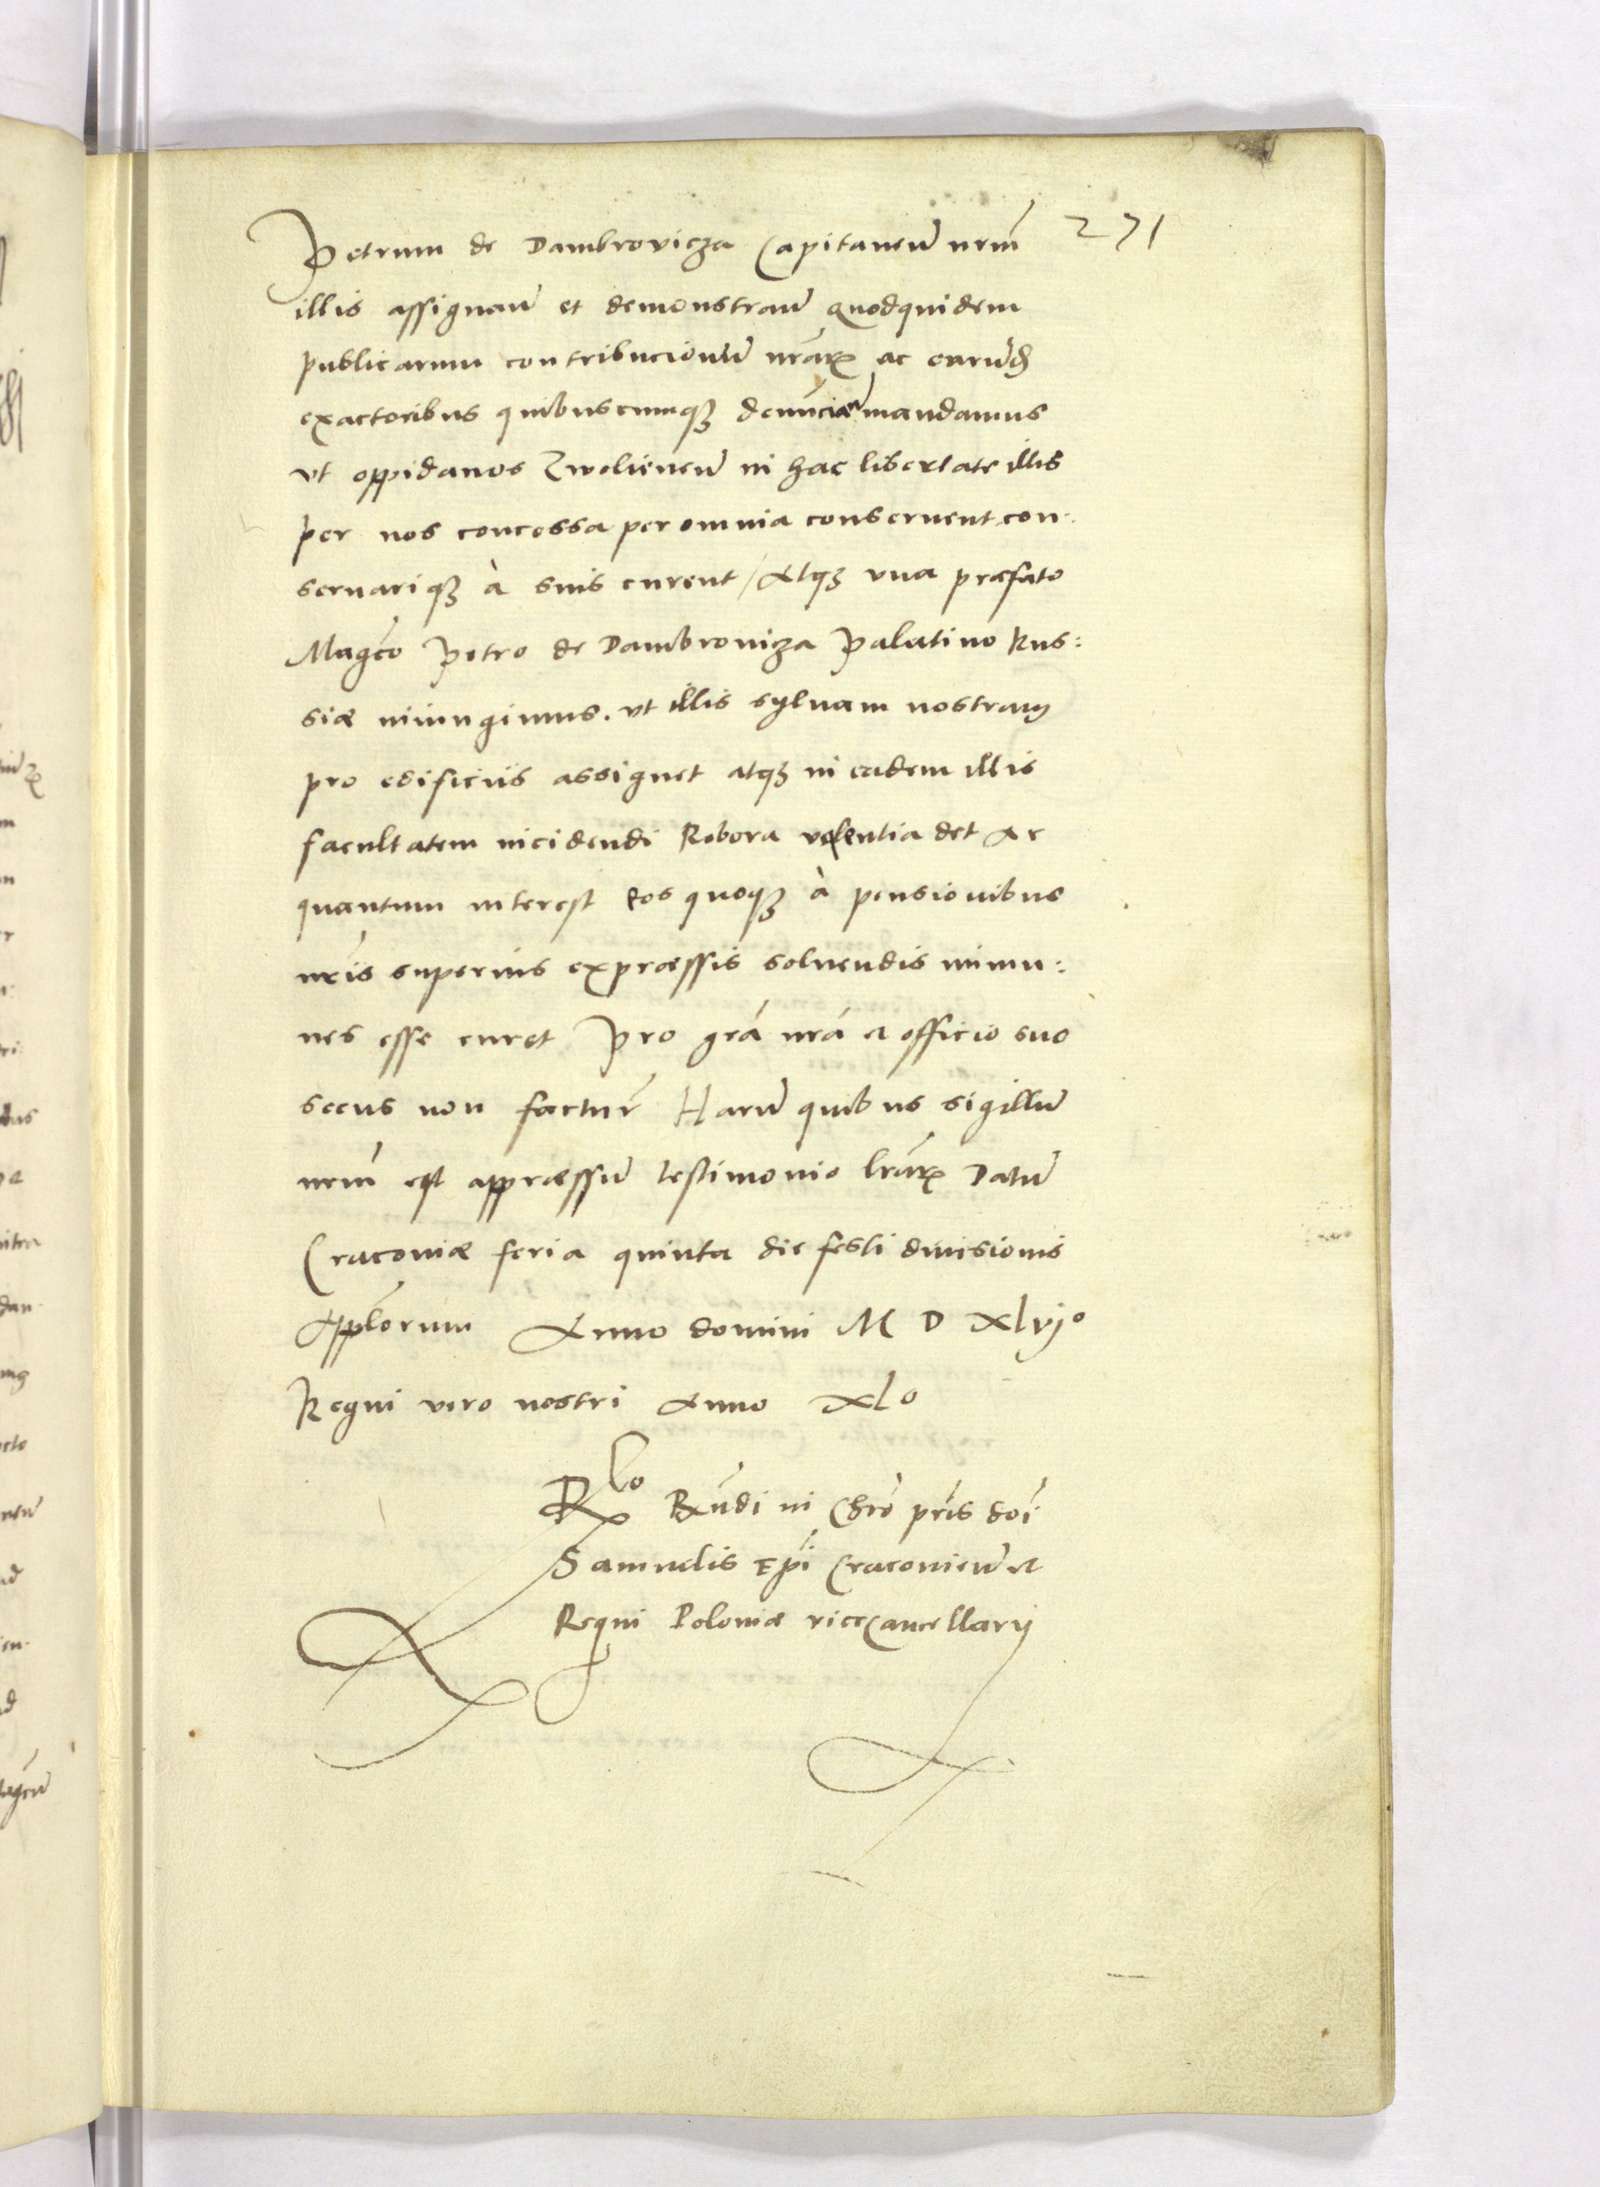 271
Petrum de Dambrovicza Capitaneū nrm̄
illis assignaū et demonstraū Quodquidem
publicarum contribucionū nrārꝝ ac earūd
exactoribus quibuscumqꝫ denūciaɱ mandamus
vt oppidanos Zwolieneñ in hac libertate illis
per nos concessa per omnia conseruent con-
seruariqꝫ à suis curent / Atqꝫ vna præfato
Magco Petro de Dambroviza Palatino Rus:
siæ iniungimus. vt illis syluam nostram
pro edificiis assignet atqꝫ in eadem illis
facultatem incidendi Robora volentia det Ac
quantum interest eos quoqꝫ à pensionibus
nrīs superius expræssis soluendis immu:
nes esse curet Pro grā nrā et officio suo
secus non factur̄ Harū quibus sigillū
nrm̄ est appræssū testimonio lrārꝝ Datū
Cracoviæ feria quinta die festi diuisionis
Applorum Anno domini M D xlvjo
Regni vero nostri Anno xlo
Rlo Rn̄di in Chrō pris doī
Samuelis Epī Cracovieñ et
Regni Poloniæ viceCancellarij